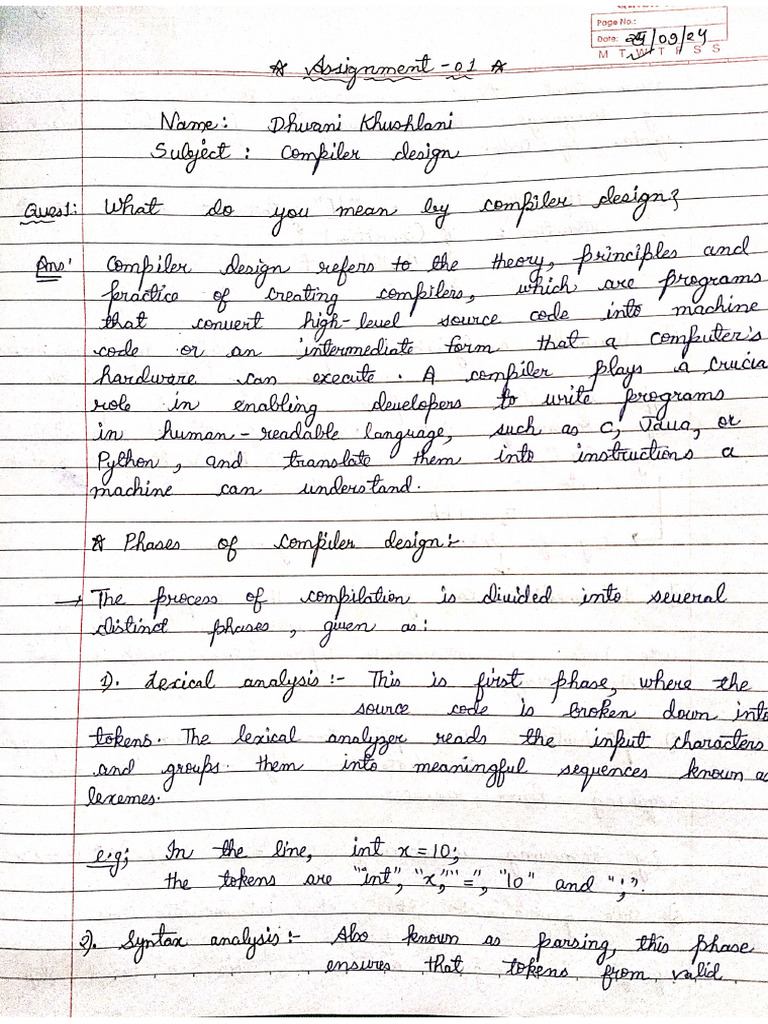 Page No.:
Date: 25/09/24
M T W T F S S
☆ Assignment - 01 ☆
Name: Dhwani Khushlani
Subject: Compiler design
Ques1: What do you mean by compiler design?
Ans: Compiler design refers to the theory, principles and
practice of creating compilers, which are programs
that convert high-level source code into machine
code or an intermediate form that a computer's
hardware can execute. A compiler plays a crucia
role in enabling developers to write programs
in human-readable language, such as C, Java, or
Python, and translate them into instructions a
machine can understand.
☆ Phases of compiler design:-
→ The process of compilation is divided into several
distinct phases, given as:
1). Lexical analysis :- This is first phase, where the
source code is broken down into
tokens. The lexical analyzer reads the input characters
and groups. them into meaningful sequences known as
lexemes.
e.g; In the line, int x = 10;
the tokens are "int", "x", "=", "10" and ";".
2). Syntax analysis :- Also known as parsing, this phase
ensures that tokens from valid